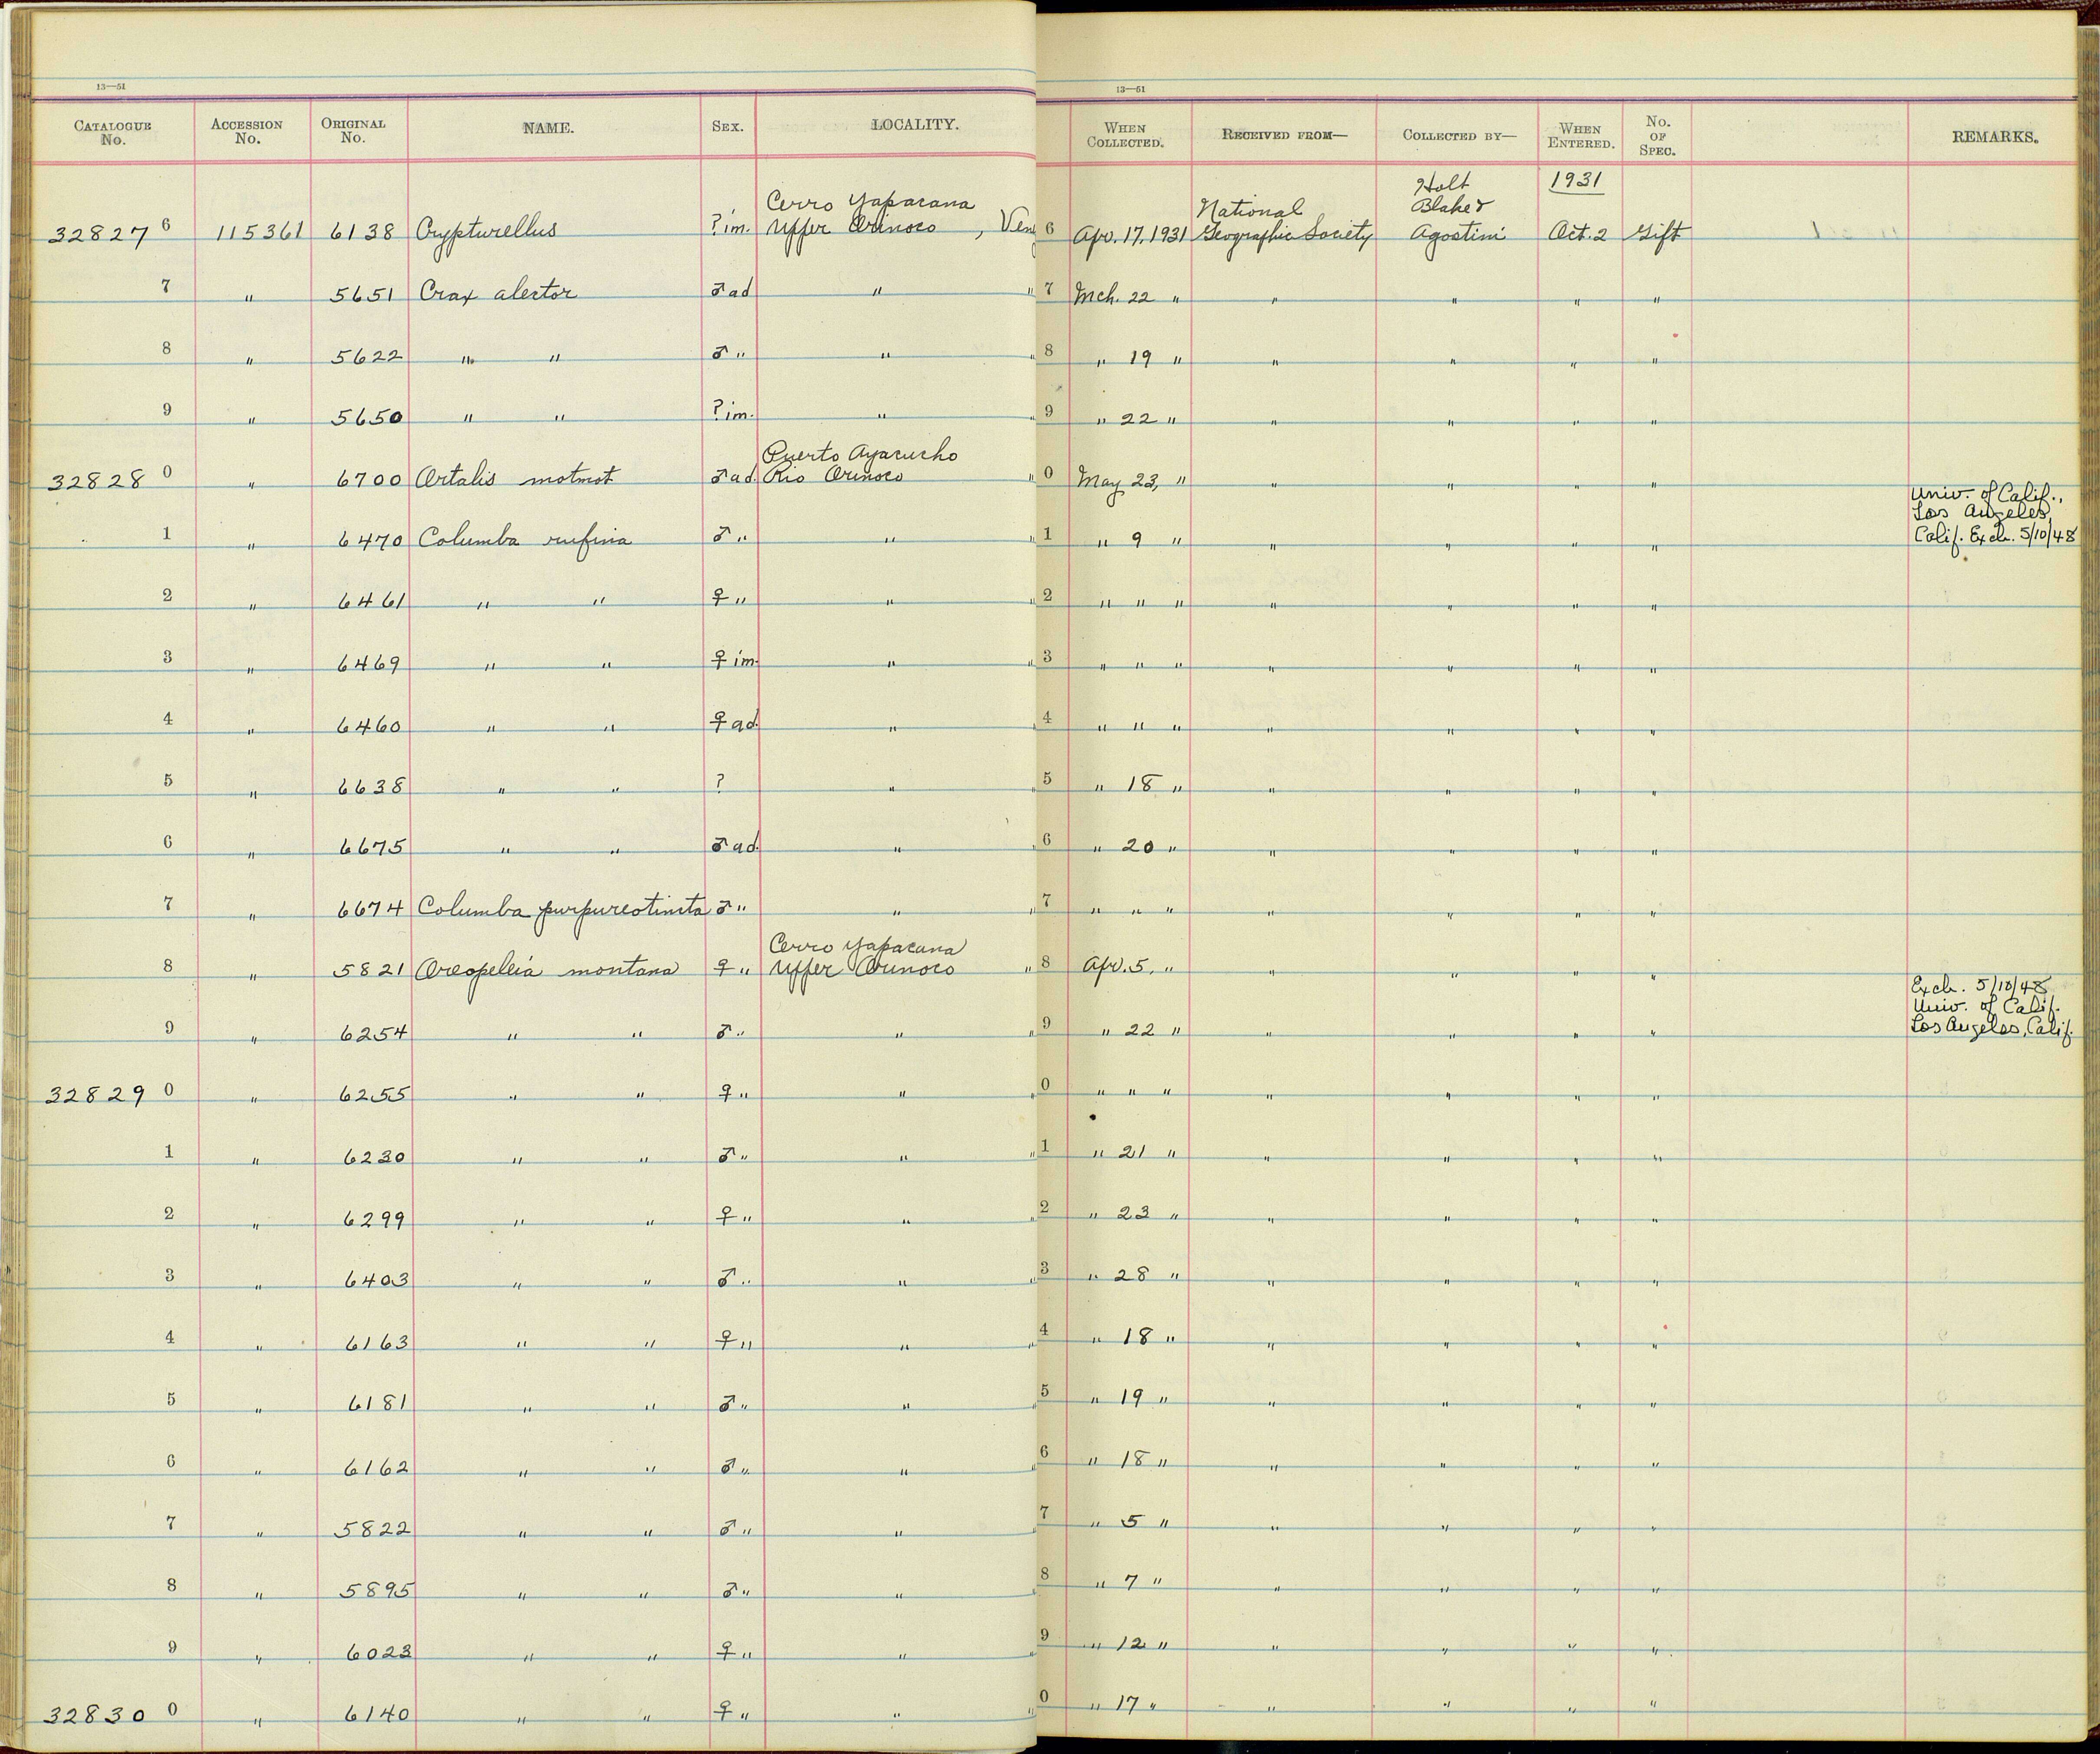 13—51
13—51
CATALOGUE No. ACCESSION No. ORIGINAL No. NAME. SEX. LOCALITY. WHEN COLLECTED. RECEIVED FROM— COLLECTED BY— WHEN ENTERED. No. OF SPEC. REMARKS.
Holt 1931
Cerro Yapacana National Blake &
32827 6 115361 6138 Crypturellus ? im. Upper Orinoco, Ven 6 Apr. 17, 1931 Geographic Society Agostini Oct. 2 Gift
7 " 5651 Crax alector ♂ ad " " 7 Mch. 22 " " " " "
8 " 5622 " " ♂ " " " 8 " 19 " " " " "
9 " 5650 " " ? im. " " 9 " 22 " " " " "
Puerto Ayacucho
32828 0 " 6700 Ortalis motmot ♂ ad. Rio Orinoco " 0 May 23, " " " " "
Univ. of Calif.,
Los Angeles,
1 " 6470 Columba rufina ♂ " " " 1 " 9 " " " " " Calif. Exch. 5/10/48
2 " 6461 " " ♀ " " " 2 " " " " " " "
3 " 6469 " " ♀ im. " " 3 " " " " " " "
4 " 6460 " " ♀ ad. " " 4 " " " " " " "
5 " 6638 " " ? " " 5 " 18 " " " " "
6 " 6675 " " ♂ ad. " " 6 " 20 " " " " "
7 " 6674 Columba purpureotincta ♂ " " " 7 " " " " " " "
Cerro Yapacana
8 " 5821 Oreopeleia montana ♀ " Upper Orinoco " 8 Apr. 5, " " " " "
Exch. 5/10/48
Univ. of Calif.
9 " 6254 " " ♂ " " " 9 " 22 " " " " " Los Angeles, Calif.
32829 0 " 6255 " " ♀ " " " 0 " " " " " " "
1 " 6230 " " ♂ " " " 1 " 21 " " " " "
2 " 6299 " " ♀ " " " 2 " 23 " " " " "
3 " 6403 " " ♂ " " " 3 " 28 " " " " "
4 " 6163 " " ♀ " " " 4 " 18 " " " " "
5 " 6181 " " ♂ " " " 5 " 19 " " " " "
6 " 6162 " " ♂ " " 6 " 18 " " " " "
7 " 5822 " " ♂ " " 7 " 5 " " " " "
8 " 5895 " " ♂ " " 8 " 7 " " " " "
9 " 6023 " " ♀ " " " 9 " 12 " " " " "
32830 0 " 6140 " " ♀ " " " 0 " 17 " " " " "